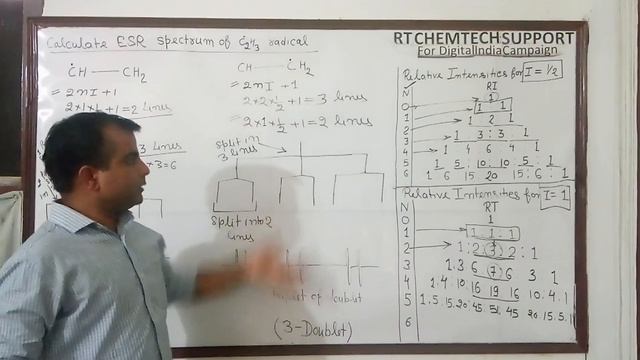 Calculate ESR spectrum of C2H3 radical
ĊH — CH2
= 2nI+1
2×1×½+1=2 lines
lines
×3=6
CH — ĊH2
= 2nI+1
2×2×½+1=3 lines
= 2×1×½+1=2 lines
split in
3 lines
split into 2
lines
of doublet
(3-Doublet)
RT CHEMTECH SUPPORT
For DigitalIndiaCampaign
Relative Intensities for I=1/2
N RI
0 1
1 1 1
2 1 2 1
3 1 3 : 3 : 1
4 1 4 6 4 1
5 1 5 10 : 10 : 5 : 1
6 1 6 15 20 15 : 6 : 1
Relative Intensities for I=1
N RI
0 1
1 1 : 1 : 1
2 1 : 2 (3) 2 : 1
3 1.3 6 (7) 6 3 1
4 1.4.10 16 19 16 10.4.1
5 1.5.15.
6